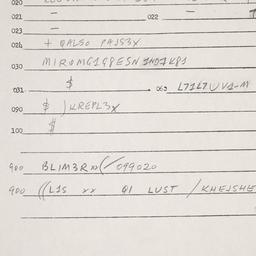 020
021 — 022 —
023 —
024 + QALSO PAJS3X
030 MIROMG1G8ESN
$
031 063 L71L7UV1-M
090 $ )KREPL3X
100 $
900 BLIM3R 099020
900 ((L1S xx QI LUST / KHEJSHE